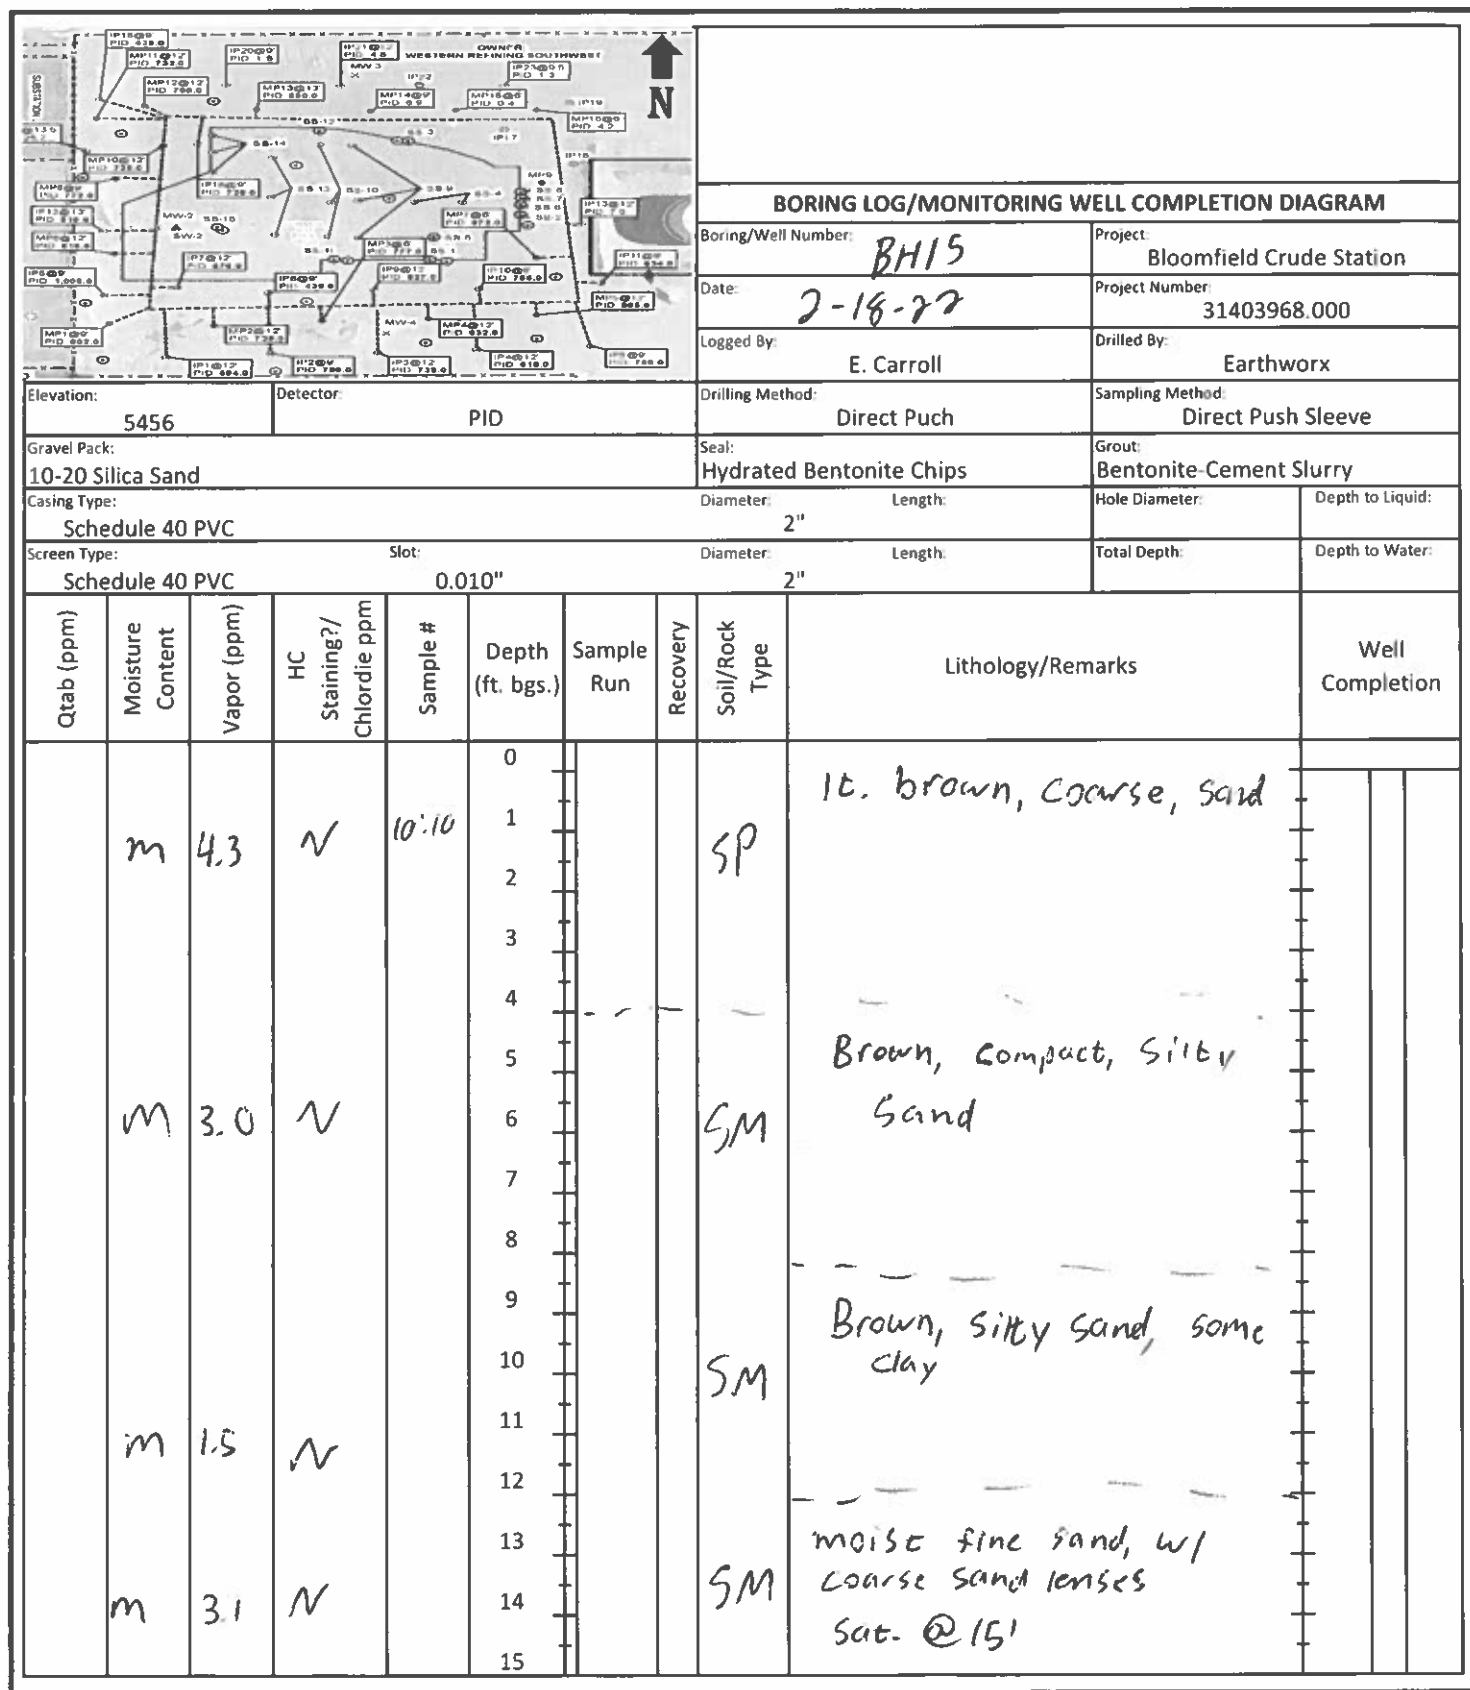 OWNER
WESTERN REFINING SOUTHWEST
N
IP20@9'
MW-3
IP-22
MP11@12'
MP12@12'
MP13@13'
MP14@9'
IP19
SS-12
SS-3
SS-14
IP17
IP18
MP10@12'
SS-13
SS-10
SS-9
SS-4
MP9
MW-2
SS-15
SW-2
MW-4
SUBSTATION
BORING LOG/MONITORING WELL COMPLETION DIAGRAM
Boring/Well Number: BH15
Project: Bloomfield Crude Station
Date: 2-18-22
Project Number: 31403968.000
Logged By: E. Carroll
Drilled By: Earthworx
Elevation: 5456
Detector: PID
Drilling Method: Direct Puch
Sampling Method: Direct Push Sleeve
Gravel Pack: 10-20 Silica Sand
Seal: Hydrated Bentonite Chips
Grout: Bentonite-Cement Slurry
Casing Type: Schedule 40 PVC
Diameter: 2"
Length:
Hole Diameter:
Depth to Liquid:
Screen Type: Schedule 40 PVC
Slot: 0.010"
Diameter: 2"
Length:
Total Depth:
Depth to Water:
Qtab (ppm)
Moisture Content
Vapor (ppm)
HC Staining?/ Chlordie ppm
Sample #
Depth (ft. bgs.)
Sample Run
Recovery
Soil/Rock Type
Lithology/Remarks
Well Completion
0
lt. brown, coarse, sand
1
m 4.3 N 10:10 SP
2
3
4
5
Brown, compact, silty
sand
m 3.0 N 6 SM
7
8
9
Brown, silty sand, some
clay
10 SM
11
m 1.5 N
12
13
moist fine sand, w/
coarse sand lenses
m 3.1 N 14 SM
Sat. @ 15'
15